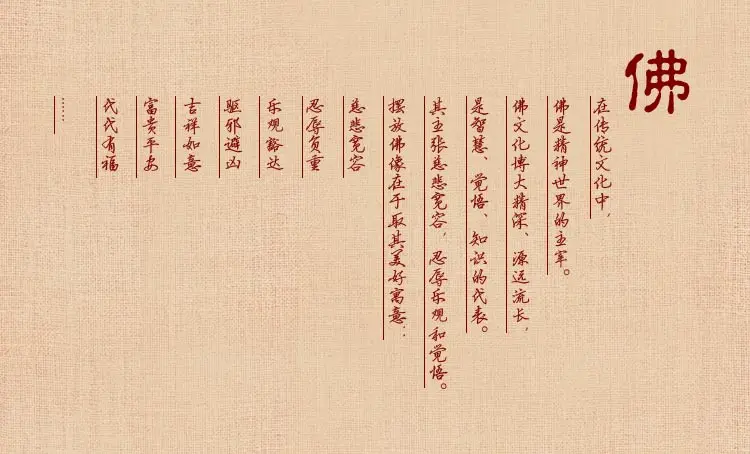 佛
在传统文化中，
佛是精神世界的主宰。
佛文化博大精深、源远流长，
是智慧、觉悟、知识的代表。
其主张慈悲宽容，忍辱乐观和觉悟。
摆放佛像在于取其美好寓意：
慈悲宽容
忍辱负重
乐观豁达
驱邪避凶
吉祥如意
富贵平安
代代有福
……